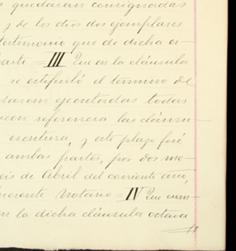 quedaran consignadas
y de los dos ejemplares
testimonio que de dicha es-
parte = III Que en la cláusula
se estipuló el término de
todas
con referencia las cláusu-
escritura, y este plazo fué
ambas partes, por dos me-
de Abril del corriente año,
Notario = IV Que cum-
en la dicha cláusula octava